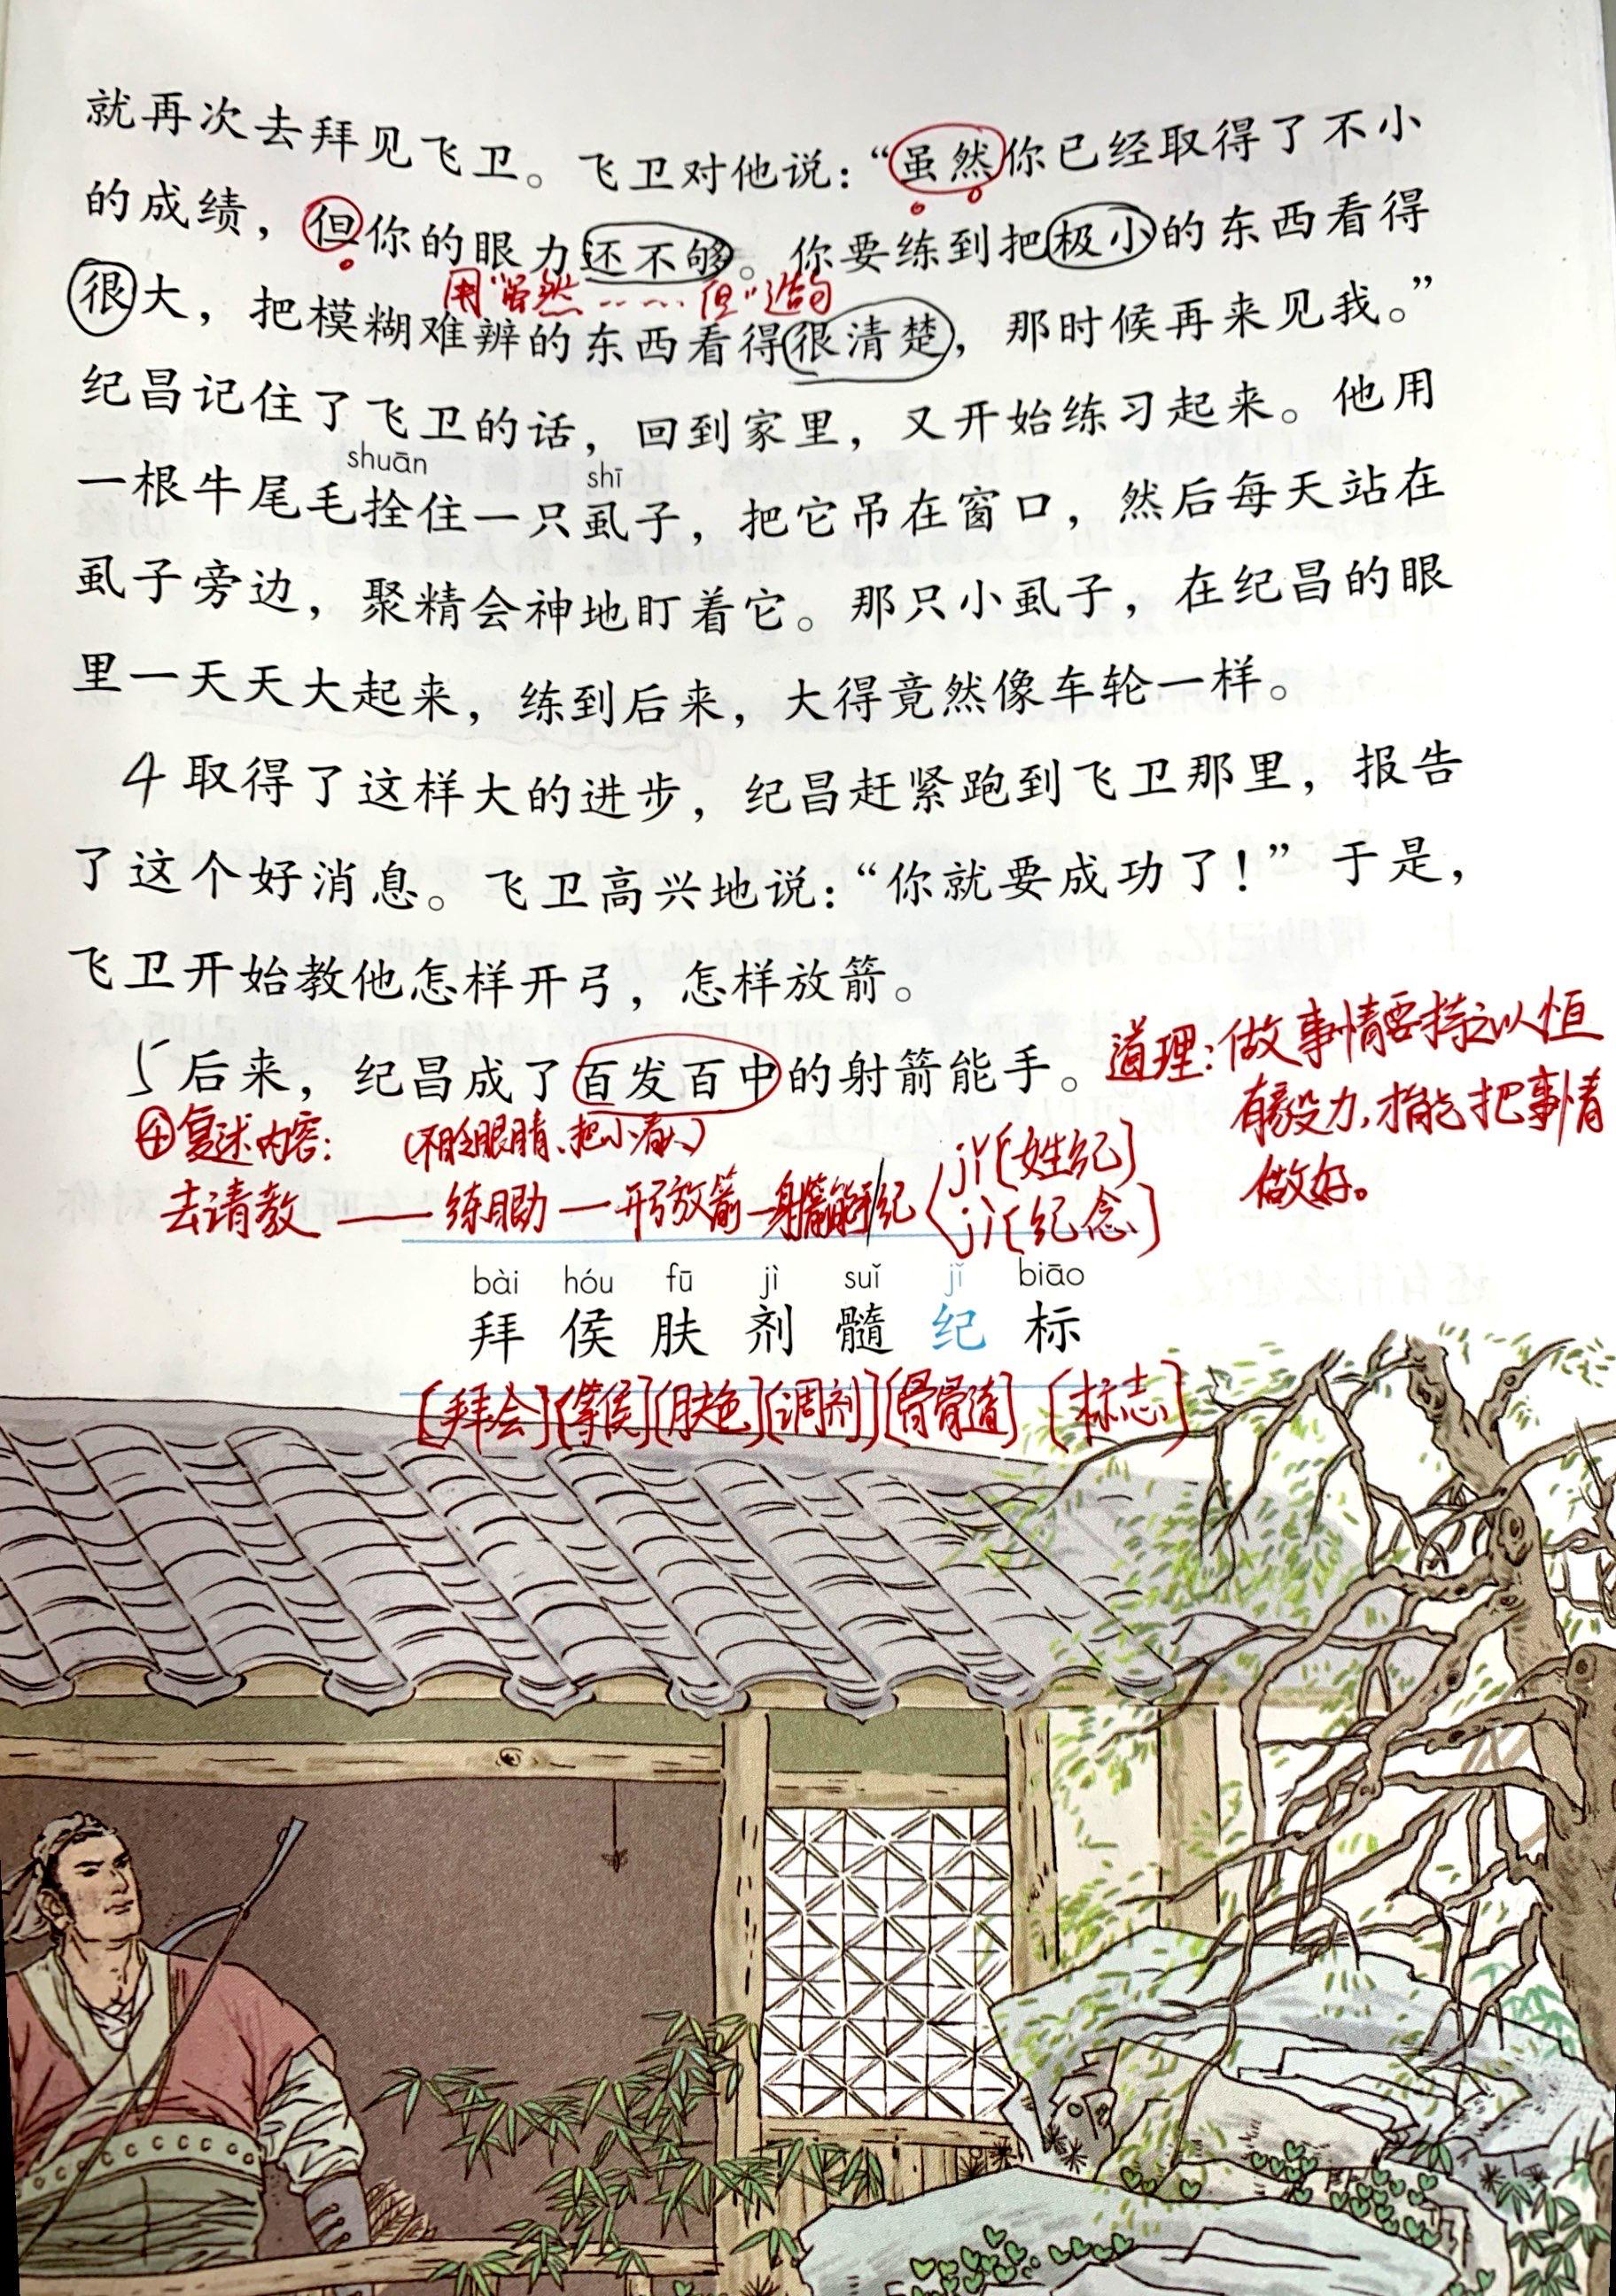 就再次去拜见飞卫。飞卫对他说：“虽然你已经取得了不小
的成绩，但你的眼力还不够。你要练到把极小的东西看得
用“虽然……但”造句
很大，把模糊难辨的东西看得很清楚，那时候再来见我。”
纪昌记住了飞卫的话，回到家里，又开始练习起来。他用
shuān shī
一根牛尾毛拴住一只虱子，把它吊在窗口，然后每天站在
虱子旁边，聚精会神地盯着它。那只小虱子，在纪昌的眼
里一天天大起来，练到后来，大得竟然像车轮一样。
4 取得了这样大的进步，纪昌赶紧跑到飞卫那里，报告
了这个好消息。飞卫高兴地说：“你就要成功了！”于是，
飞卫开始教他怎样开弓，怎样放箭。
5 后来，纪昌成了百发百中的射箭能手。
道理：做事情要持之以恒
有毅力，才能把事情
做好。
复述内容：
(不眨眼睛、把小看大)
去请教——练眼力—开弓放箭—射箭能手
纪 jǐ[姓纪]
jì[纪念]
bài hóu fū jì suǐ jǐ biāo
拜 侯 肤 剂 髓 纪 标
[拜会][等侯][肤色][调剂][骨髓] [标志]